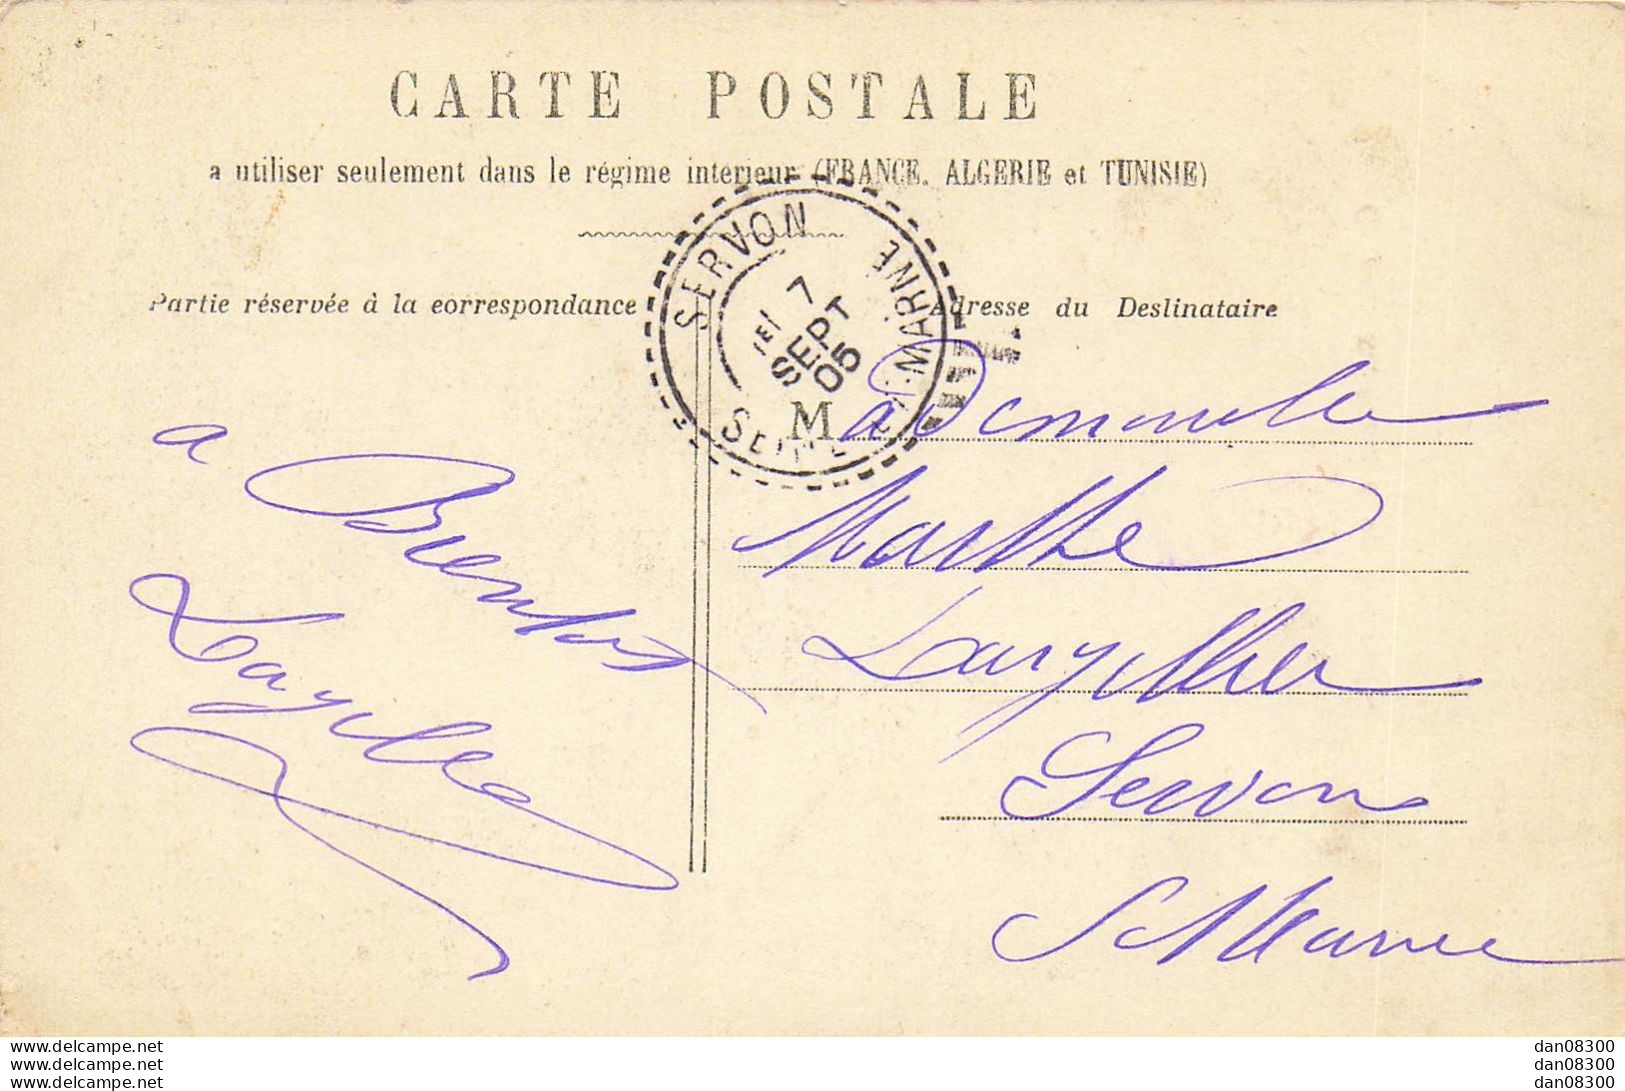 CARTE POSTALE
a utiliser seulement dans le régime interieur (FRANCE, ALGERIE et TUNISIE)
SERVON
SEINE-ET-MARNE
7
SEPT
05
Partie réservée à la correspondance
Adresse du Destinataire
a
Bientot
M ademoiselle
Marthe
Servon
S et Marne
www.delcampe.net
www.delcampe.net
www.delcampe.net
dan08300
dan08300
dan08300